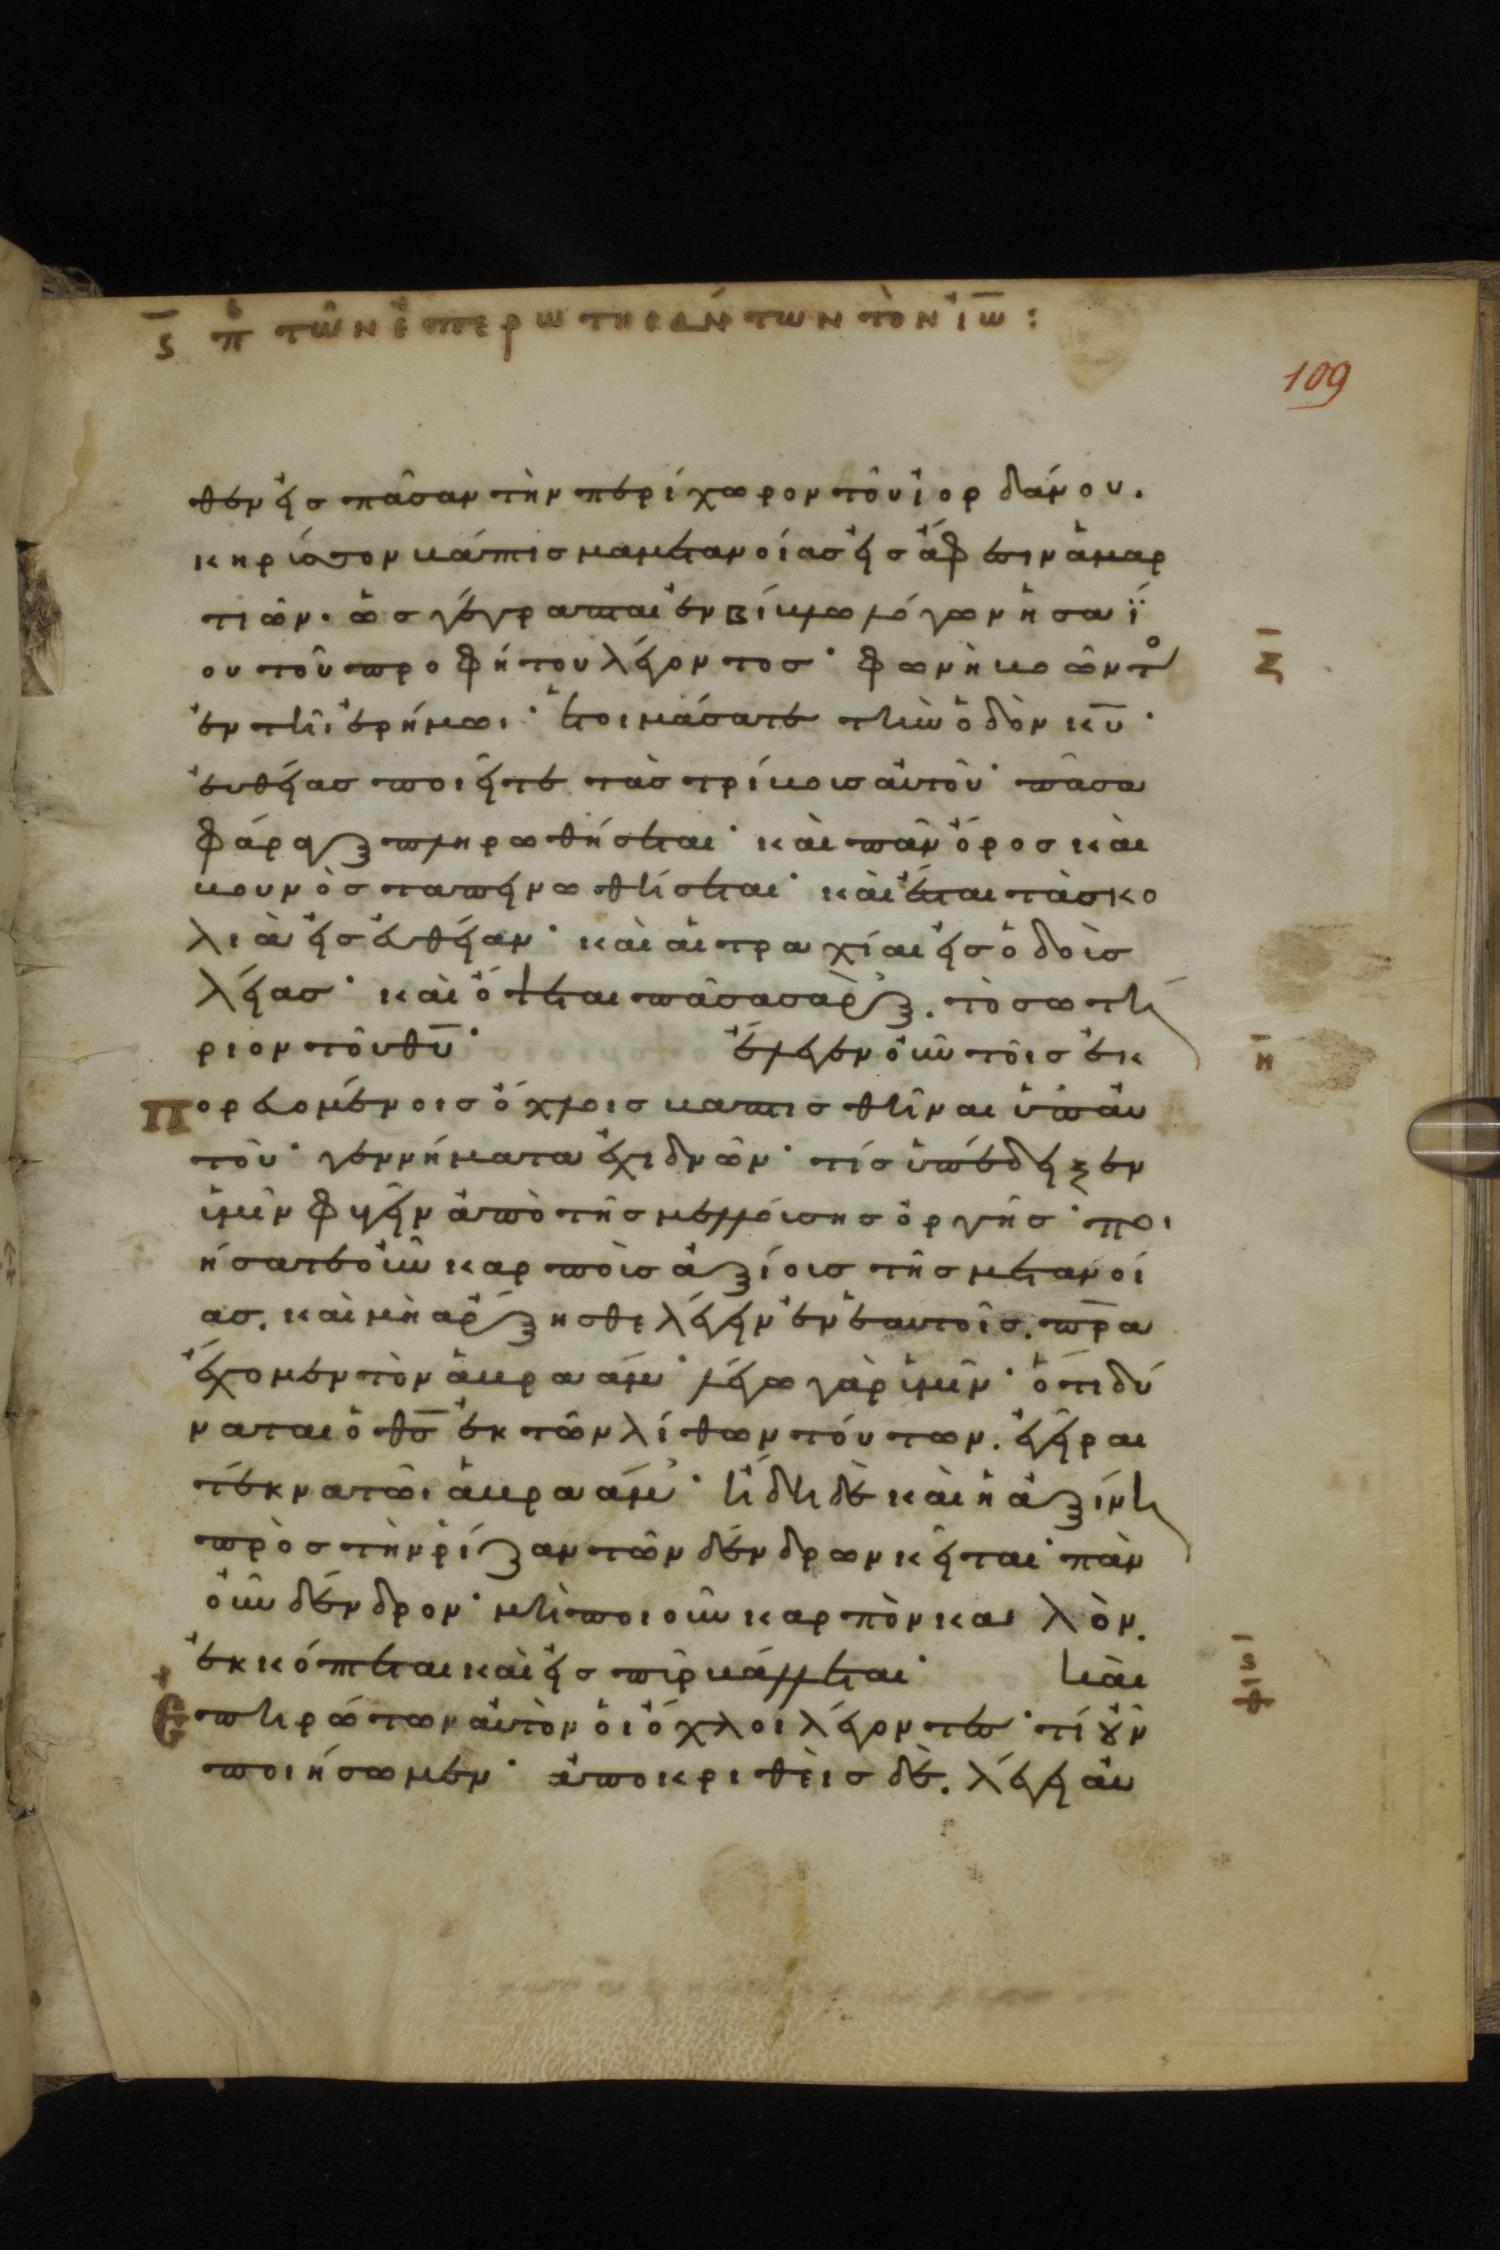 ϛ̅ π̅ τῶν ἐπερωτησάντων τὸν ἰω̅:
109
θεν εἰς πᾶσαν τὴν περίχωρον τοῦ ἰορδάνου.
κηρύσσον βάπτισμα μετανοίας εἰς ἄφεσιν ἁμαρ
τιῶν. ὡς γέγραπται ἐν βίβλω λόγων ἡσαΐ
ου τοῦ προφήτου λέγοντος· φωνὴ βοῶντο
ἐν τῆι ἐρήμωι· ἑτοιμάσατε τὴν ὁδὸν κ̅υ̅·
εὐθείας ποιεῖτε τὰς τρίβους αὐτοῦ· πᾶσα
φάραγξ πληρωθήσεται· καὶ πᾶν ὄρος καὶ
βουνὸς ταπεινωθήσεται· καὶ ἔσται τὰ σκο
λιὰ εἰς εὐθεῖαν· καὶ αἱ τραχίαι εἰς ὁδοὺς
λείας· καὶ ὄψεται πᾶσα σὰρξ. τὸ σωτή
ριον τοῦ θ̅υ̅· ἔλεγεν οὖν τοῖς ἐκ
πορευομένοις ὄχλοις βαπτισθῆναι ὑπ' αὐ
τοῦ· γεννήματα ἐχιδνῶν· τίς ὑπέδειξεν
ὑμῖν φυγεῖν ἀπὸ τῆς μελλούσης ὀργῆς· ποι
ήσατε οὖν καρποὺς ἀξίους τῆς μετανοί
ας. καὶ μὴ ἄρξησθε λέγειν ἐν ἑαυτοῖς. π̅ρ̅α
ἔχομεν τὸν ἁβραάμ· λέγω γὰρ ὑμῖν· ὅτι δύ
ναται ὁ θ̅ς̅ ἐκ τῶν λίθων τούτων. ἐγεῖραι
τέκνα τῶι ἁβραάμ· ἤδη δὲ καὶ ἡ ἀξίνη
πρὸς τὴν ῥίζαν τῶν δένδρων κεῖται· πὰν
οὖν δένδρον· μὴ ποιοῦν καρπὸν καλὸν.
ἐκκόπτεται καὶ εἰς πῦρ βάλλεται· καὶ
ἐπηρώτων αὐτὸν οἱ ὄχλοι λέγοντες· τί οὖν
ποιήσωμεν· ἀποκριθεὶς δὲ. λέγει αὐ
ζ̅
η̅
ϛ̅
θ̅